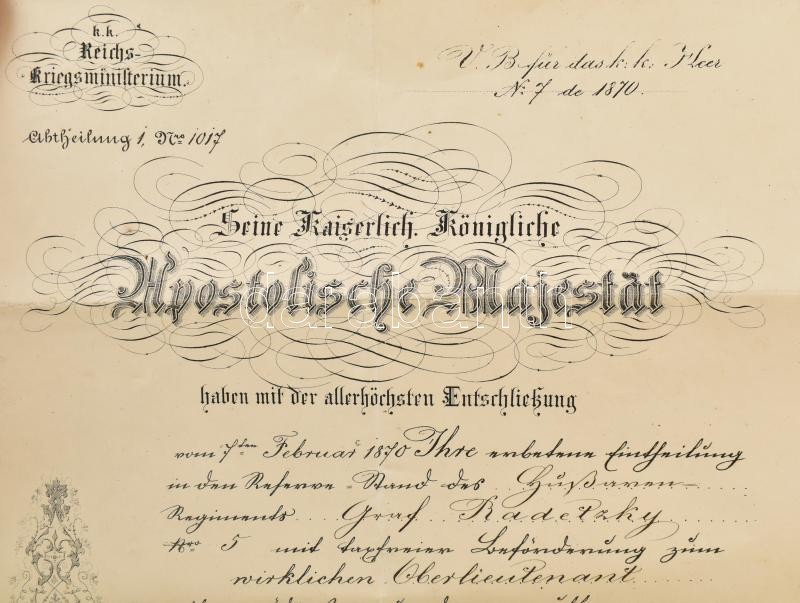 k.k.
Reichs-
Kriegsministerium.
V. B. für das k: k: Heer
No: 7 de 1870.
Abtheilung 1, Nro 1017
Seine Kaiserlich. Königliche
Apostolische Majestät
darabanth
haben mit der allerhöchsten Entschließung
vom 7ten Februar 1870 Ihre erbetene Eintheilung
in den Reserve-Stand des Hußaren-
Regiments Graf Radetzky
Nro 5 mit taxfreier Beförderung zum
wirklichen Oberlieutenant